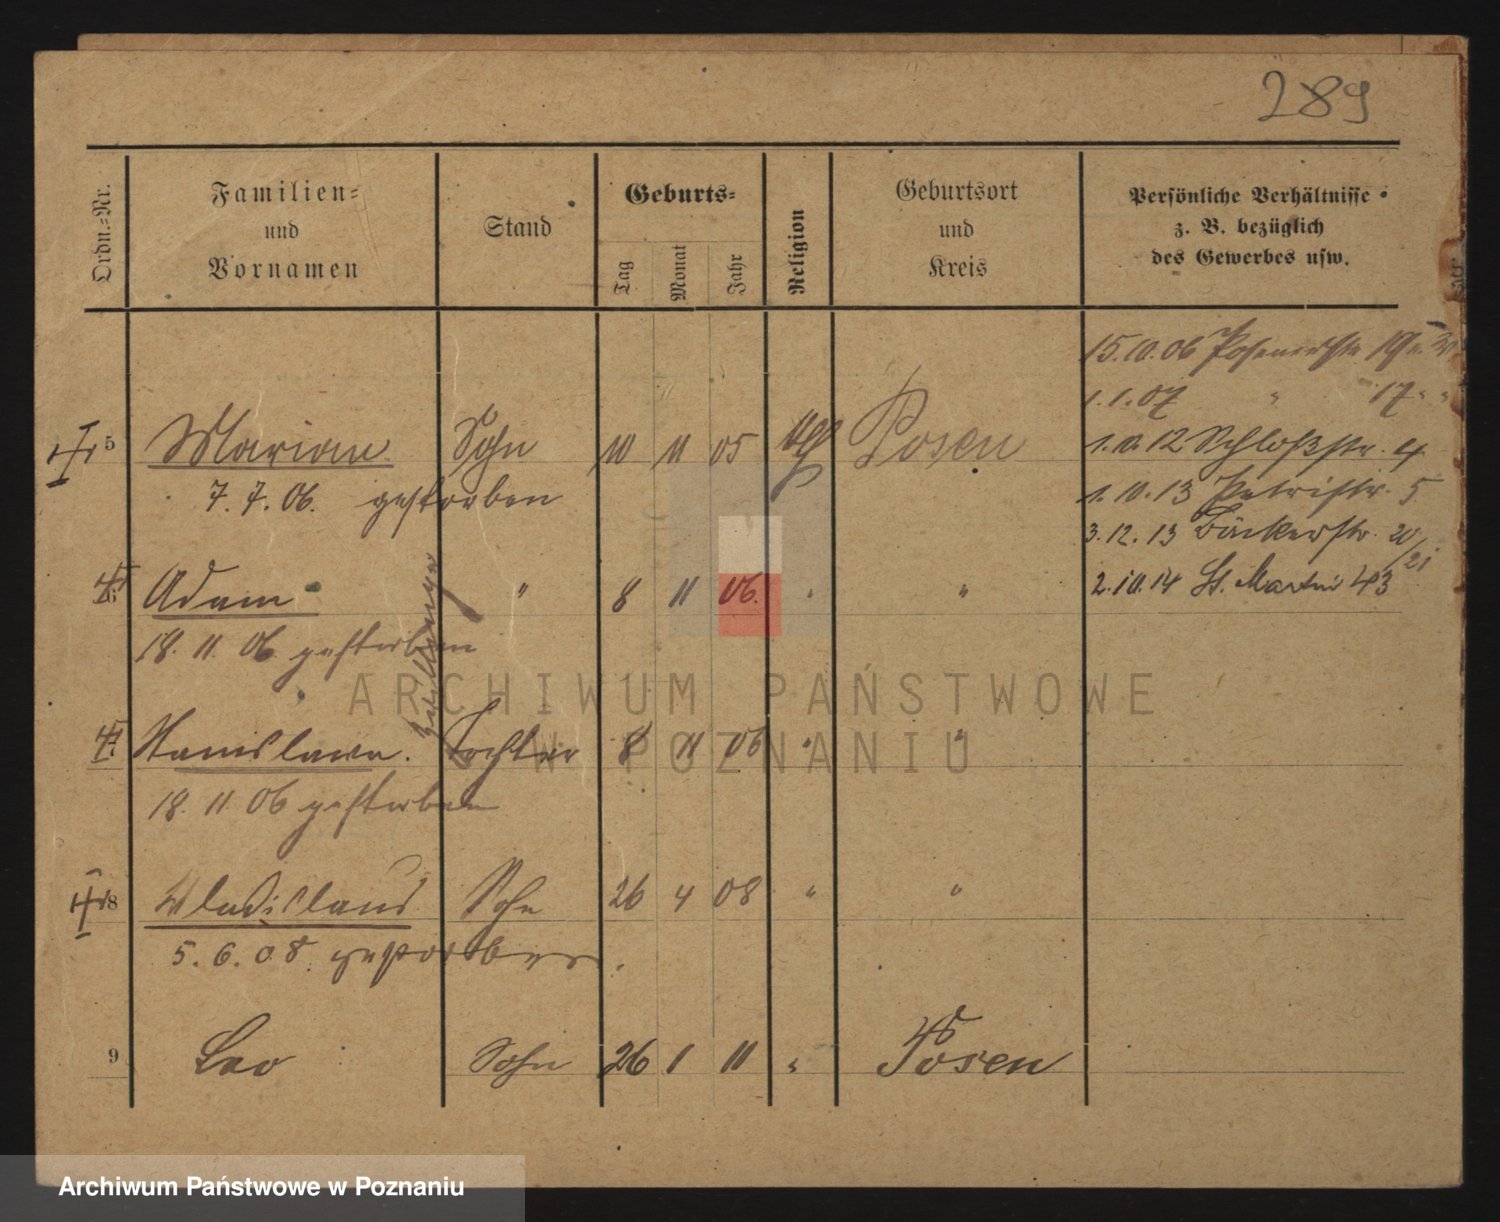 289
Ordn.-Nr.
Familien-
und
Vornamen
Stand
Geburts-
Tag
Monat
Jahr
Religion
Geburtsort
und
Kreis
Persönliche Verhältnisse
z. B. bezüglich
des Gewerbes usw.
15.10.06 Posenerstr.
1.1.07 " 17 " "
5 Marian Sohn 10 11 05 Posen
1.10.12 Schloßstr. 4
7. 7. 06. gestorben
1.10.13 Petristr. 5
3.12.13 Bäckerstr. 20/21
6 Adam " 8 11 06. " "
2.10.14 St. Martin 43
18. 11. 06. gestorben
Zwillinge
7 Stanislawa. Tochter 8 11 06 " "
18. 11 06 gestorben
8 Wladislaus Sohn 26 4 08 " "
5. 6. 08. gestorben.
9 Leo Sohn 26 1 11 " Posen
ARCHIWUM PAŃSTWOWE
W POZNANIU
Archiwum Państwowe w Poznaniu